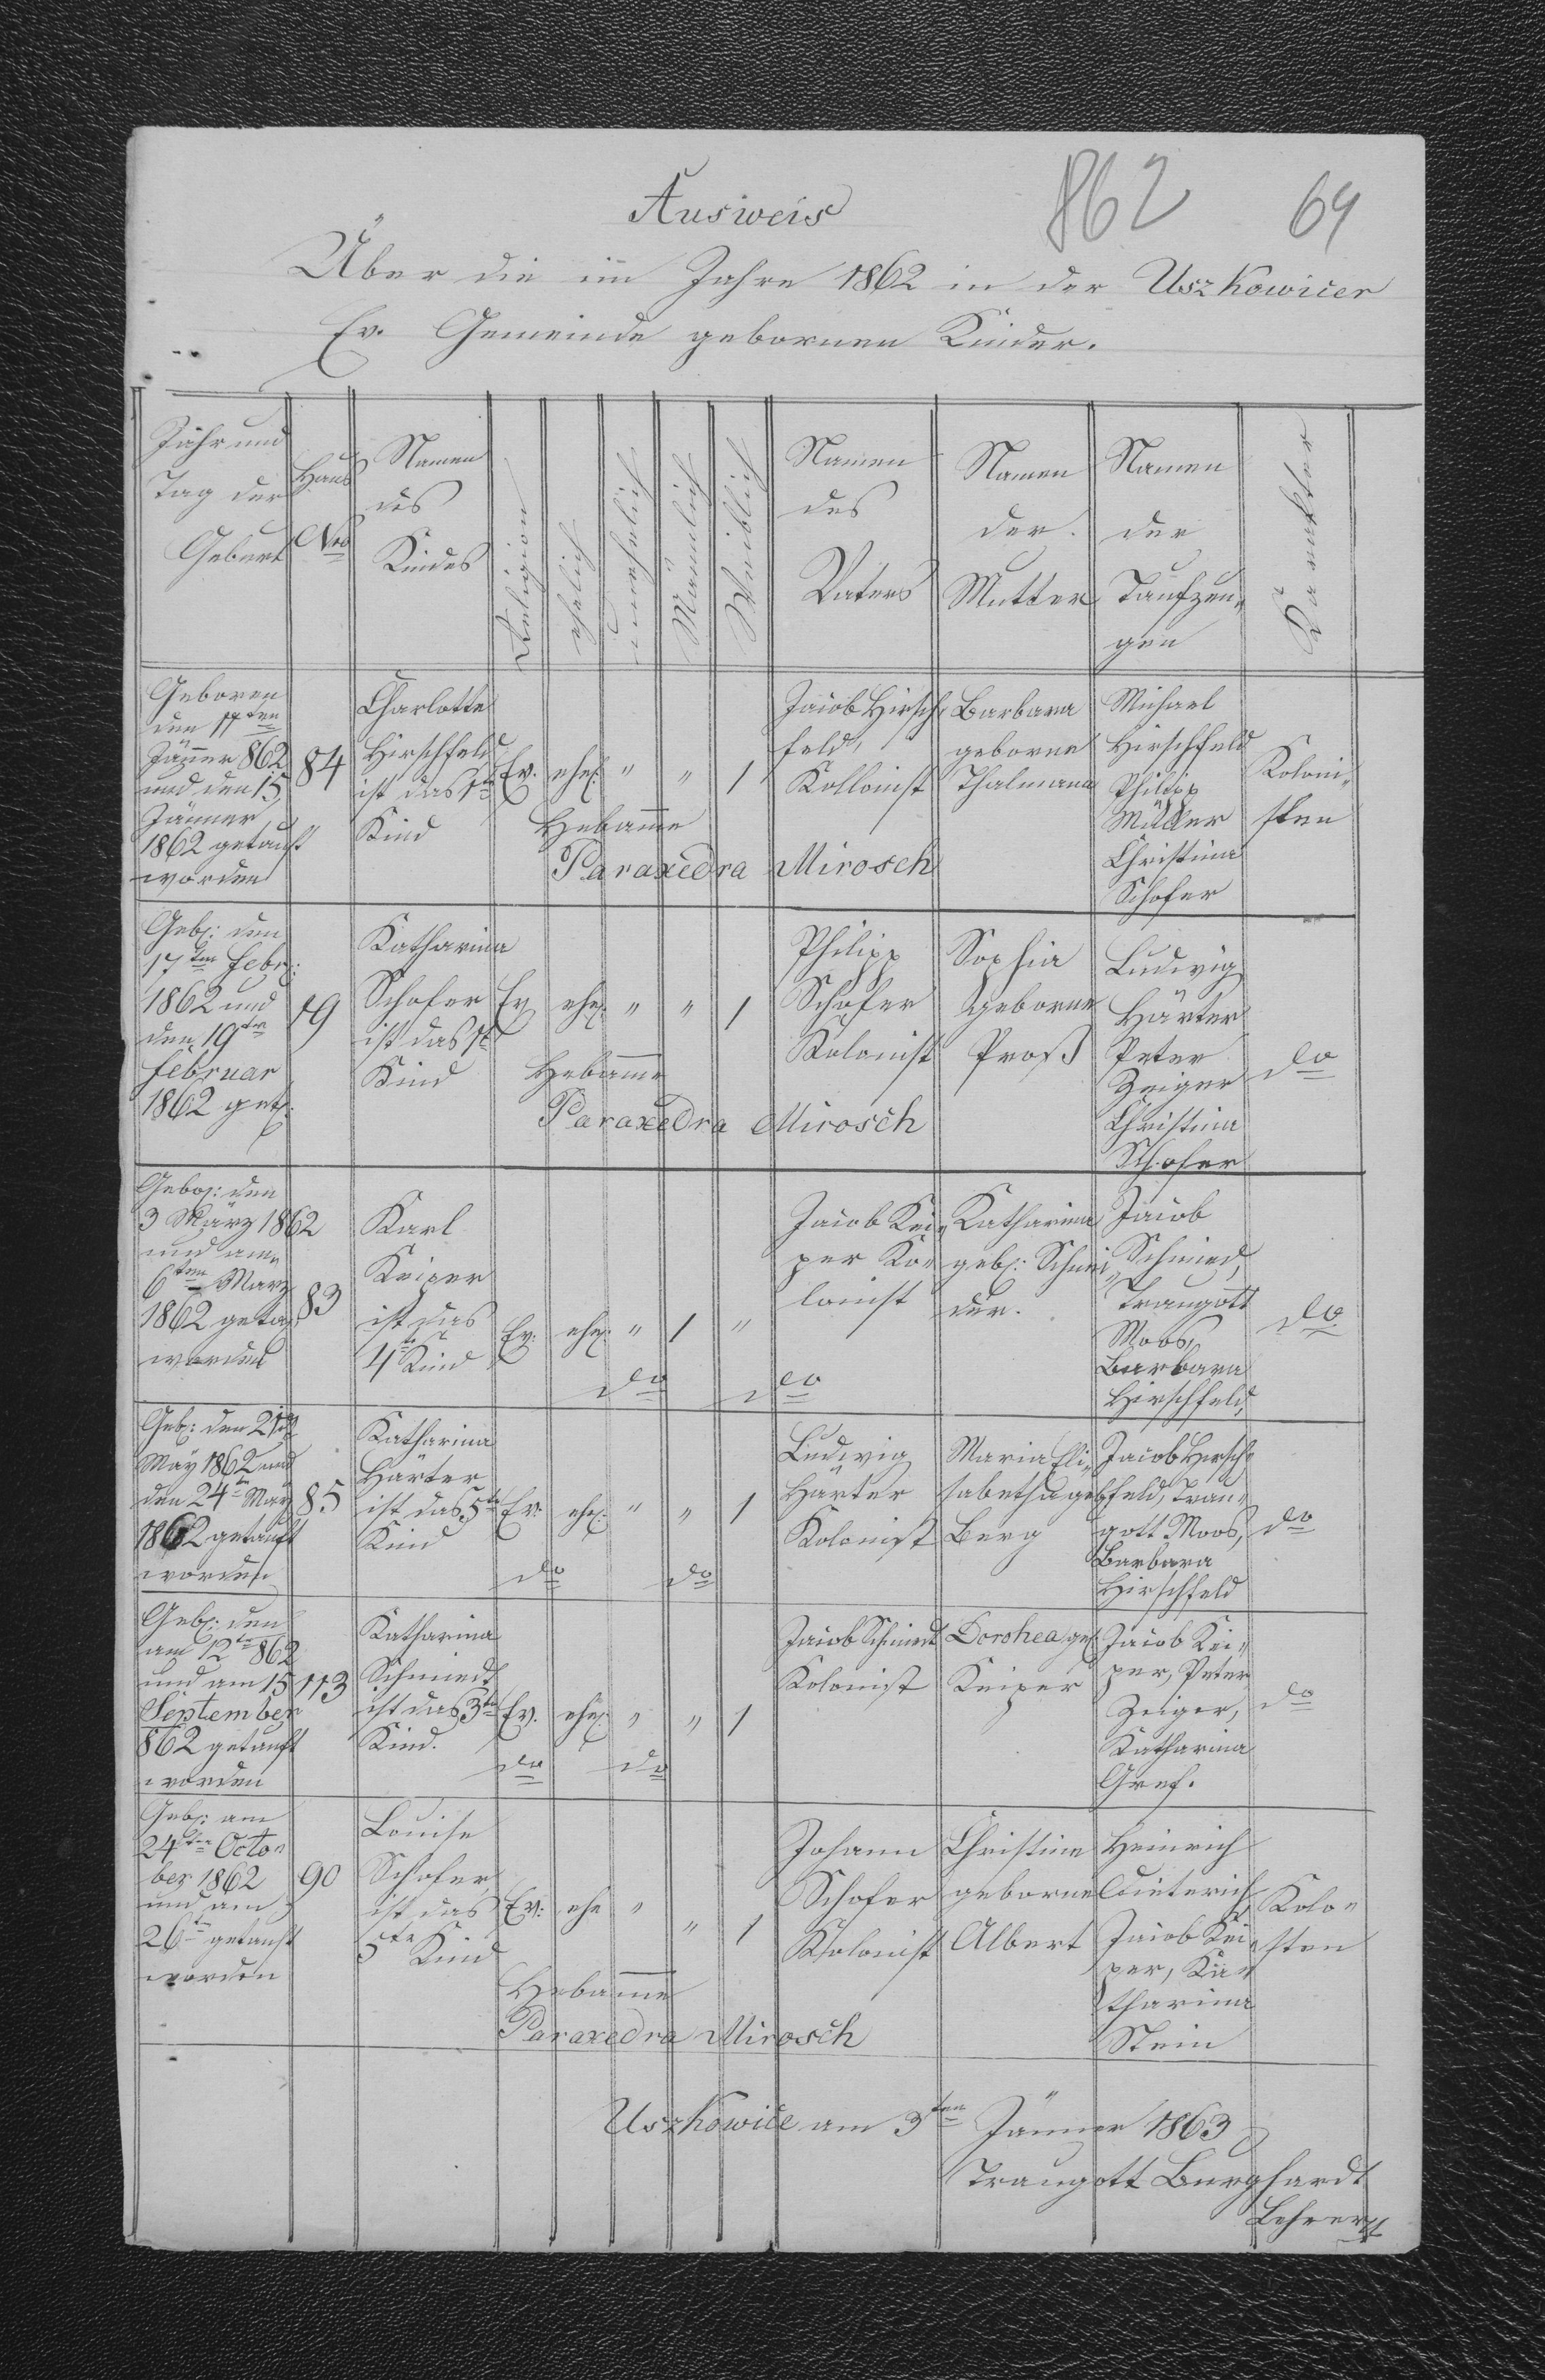 Ausweis
862 64
Über die im Jahre 1862 in der Uszkowicer
Ev. Gemeinde gebornen Kinder.
Jahr und
Tag der
Geburt
Haus
Nro
Namen
des
Kindes
Religion
ehelich
unehelich
Mänlich
Weiblich
Namen
des
Vaters
Namen
der
Mutter
Namen
der
Taufzeu-
gen
Karakter
Geboren
den 11ten
Jänner 862
und den 15
Jänner
1862 getauft
worden
84
Charlotte
Hirschfeld
ist das 1te
Kind
Ev. ehel: " " 1
Hebamme
Paraxedra Mirosch
Jaiob Hirsch-
feld,
Kollonist
Barbara
geborne
Thalmann
Michael
Hirschfeld
Philipp
Müller
Christina
Schofer
Koloni-
sten
Geb: den
17ten Febr:
1862 und
den 19ten
Februar
1862 get:
19
Katharina
Schofer
ist das 1te
Kind
Ev. ehe: " " 1
Hebamme
Paraxedra Mirosch
Philipp
Schofer
Kolonist
Sophia
geborne
Proß
Ludwig
Härter
Peter
Zeiger
Christina
Schofer
do
Gebo: den
3 März 1862
und am
6ten Marz
1862 geta:
worden
83
Karl
Keiper
ist das
4te Kind
Ev: ehe: " 1 "
do do
Jaiob Kei-
per Ko-
lonist
Katharina
geb: Schnei-
der.
Jaiob
Schmied,
Traugott
Moos,
Barbara
Hirschfeld,
do
Geb: den 21ten
May 1862 und
den 24ten May
1862 getauft
worden
85
Katharina
Härter
ist das 5te
Kind
Ev. ehe: " " 1
do do
Ludwig
Härter
Kolonist
Maria Eli-
sabetha geb
Berg
Jaiob Hirsch-
feld, Trau-
gott Moos,
Barbara
Hirschfeld
do
Geb: den
am 12ten 862
und am 15
September
862 getauft
worden
113
Katharina
Schmiedt
ist das 3te
Kind.
Ev. ehe: " " 1
do do
Jaiob Schmiedt
Kolonist
Dorohea ge:
Keiper
Jaiob Kei-
per, Peter
Zeiger,
Katharina
Gref.
do
Geb: am
24ten Octo-
ber 1862
und am
26tn getauft
worden
90
Louise
Schofer,
ist das
5te Kind
Ev: ehe " " 1
Hebamme
Paraxedra Mirosch
Johann
Schofer
Kolonist
Christine
geborne
Albert
Heinrich
Dieterich,
Jaiob Kei-
per, Ka-
tharina
Stein
Kolo-
sten
Uszkowice am 3ten Jänner 1863
Traugott Burghardt
Lehrer